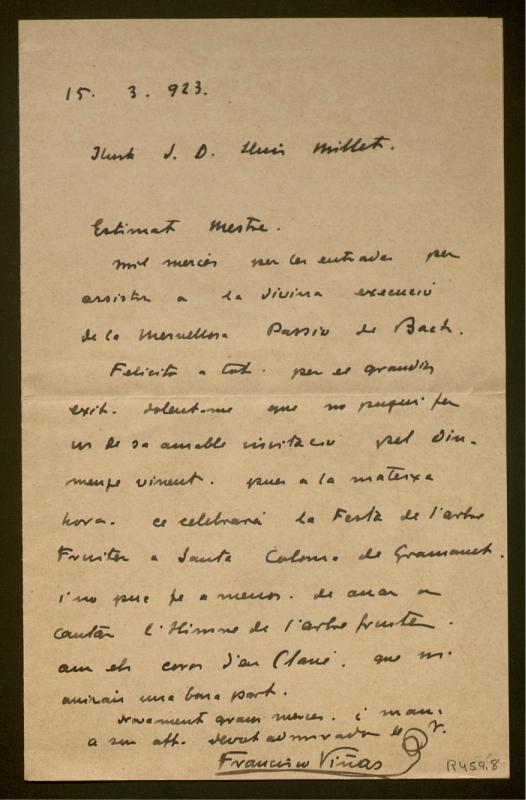 15. 3. 923.
Ilustr S. D. Lluis Millet.
Estimat Mestre.
Mil mercés per les entrades per
assistir a la divina execució
de la mervellosa Passio de Bach.
Felicito a tot. per el grandiós
exit. dolent-me que no pugui fer
us de sa amable invitacio pel Diu-
menge vinent. pues a la mateixa
hora. ce celebrará la Festa de l'arbre
Fruiter a Santa Coloma de Gramanet.
i no puc fe a menos. de anar a
cantar l'Himne de l'arbre fruiter.
am els coros d'en Clavé. que ni
anirán una bona part.
Novament grans merces. i man.
a son att. devot admirador e
Francisco Viñas
R459.8